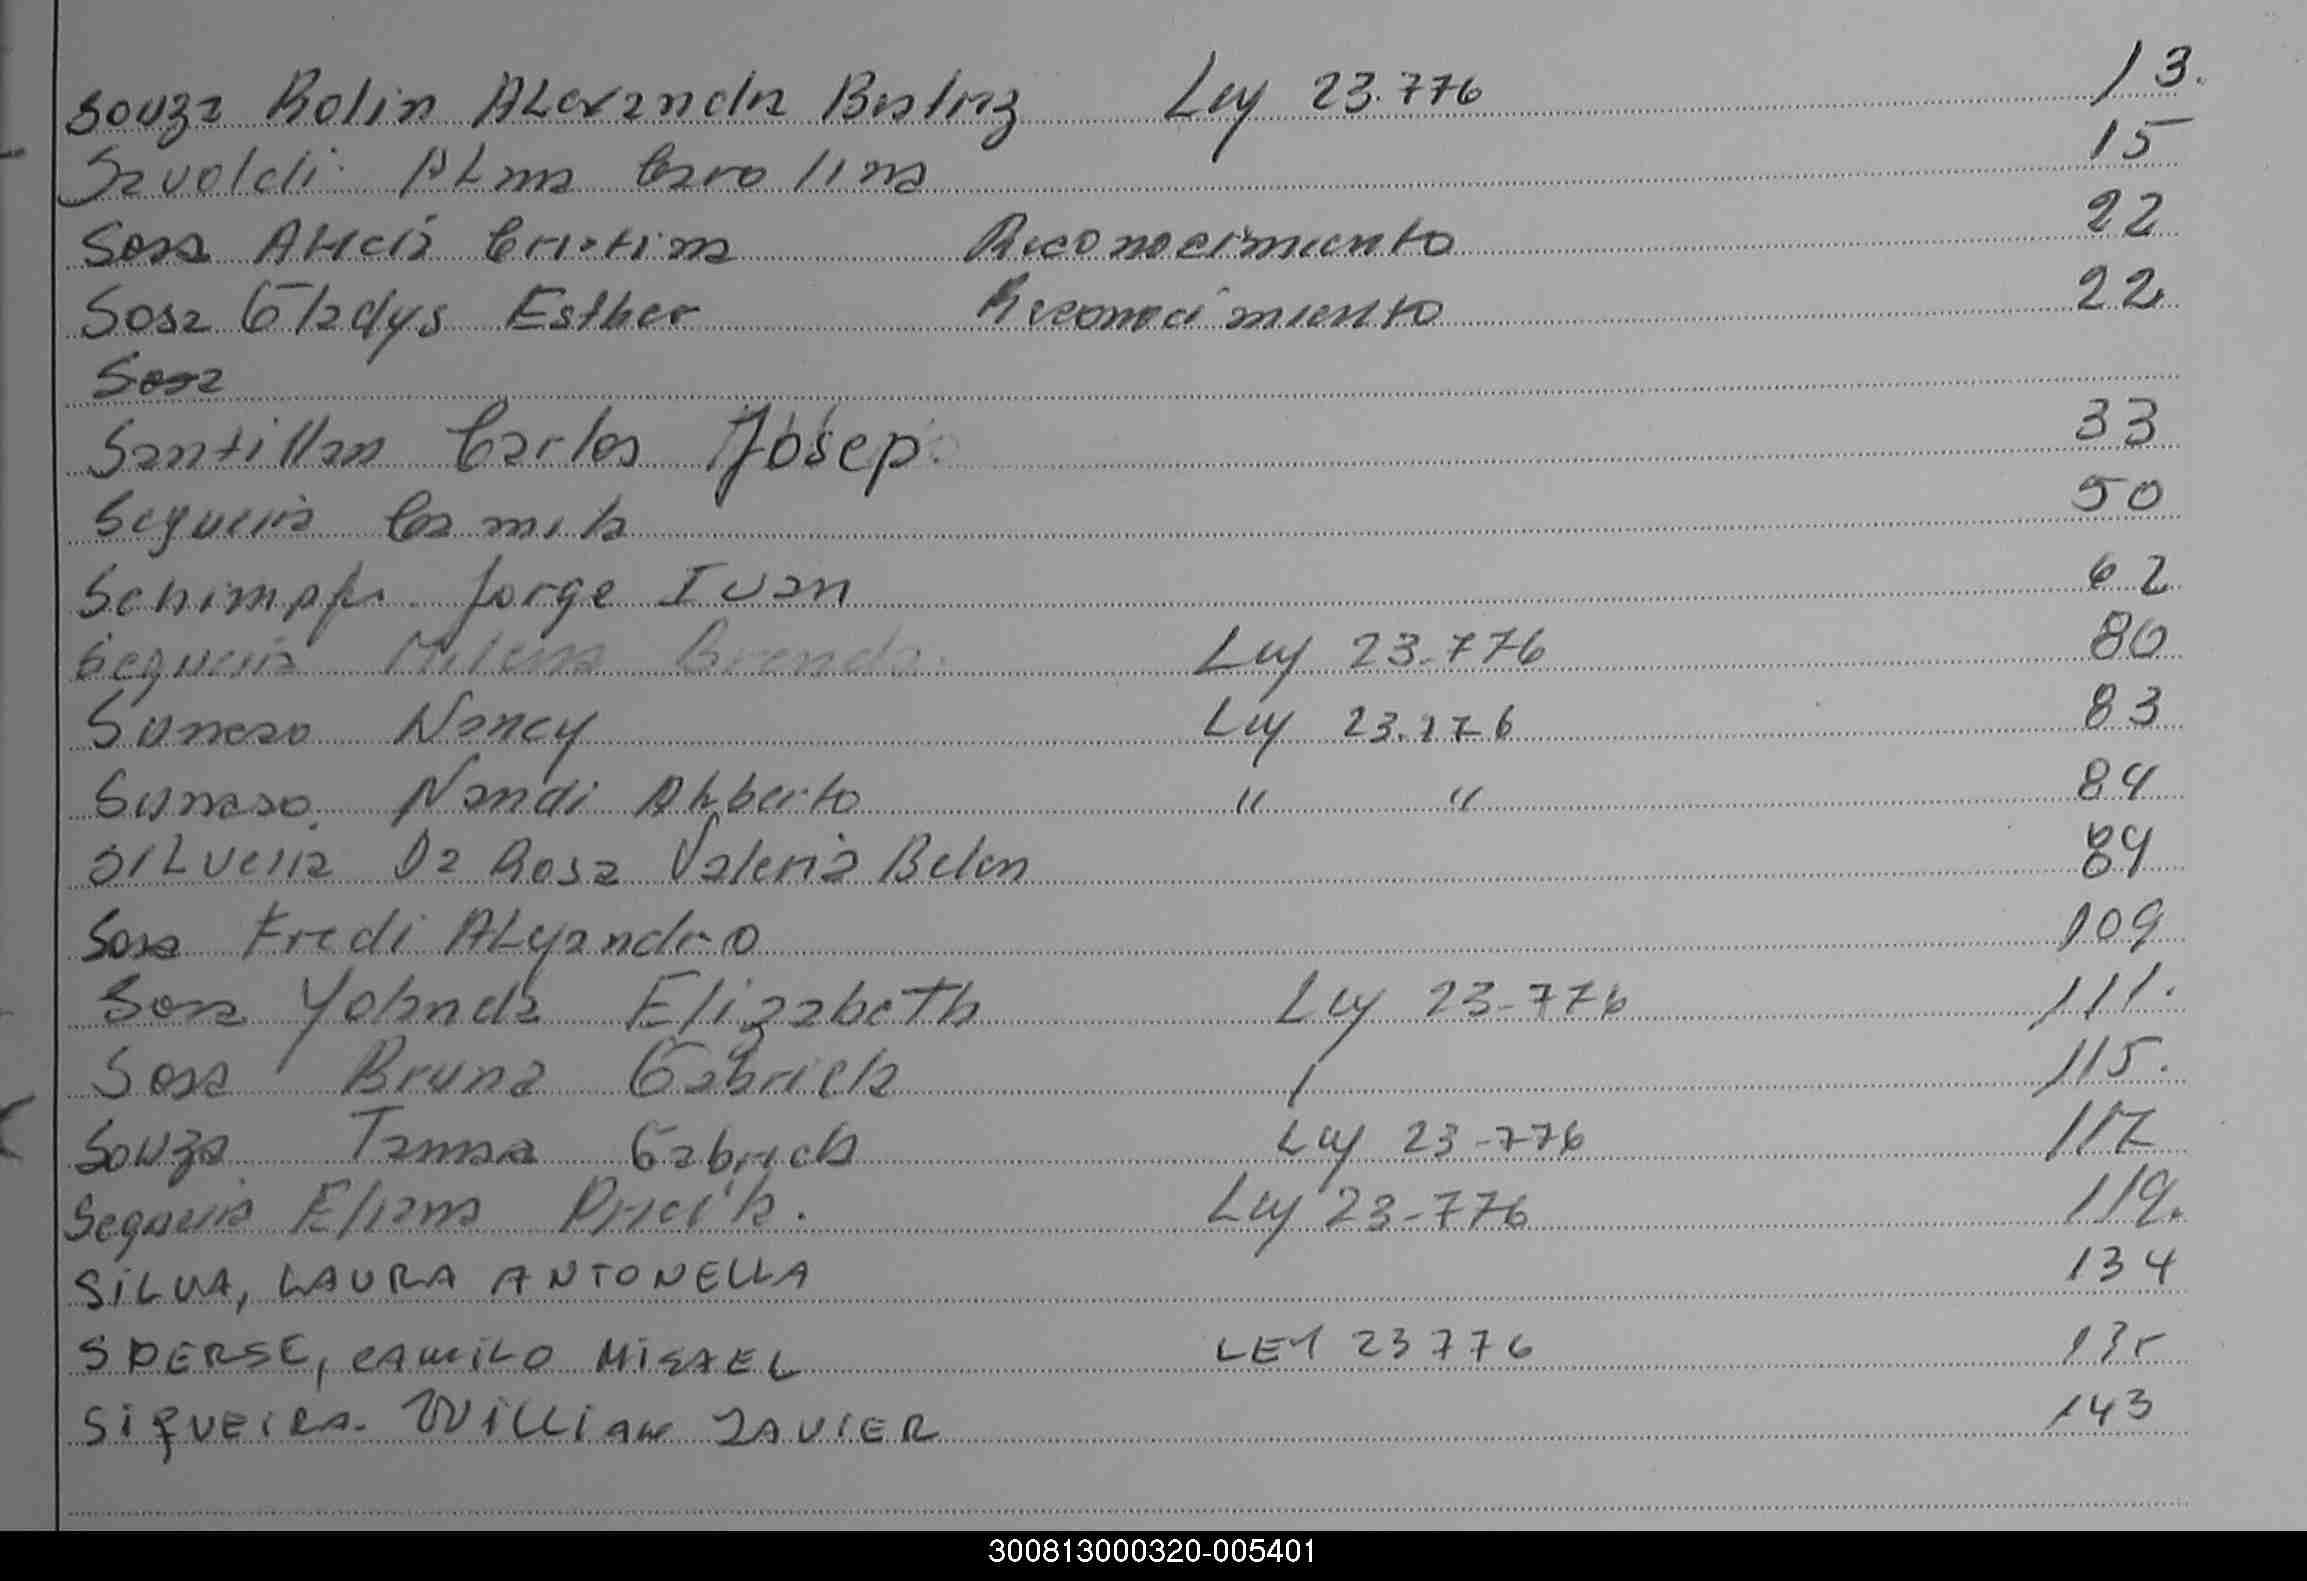 Souza Rolin Alexandra Beatriz Ley 23.776 13.
Savoldi Alma Carolina 15
Sosa Alicia Cristina Reconocimiento 22
Sosa Gladys Esther Reconocimiento 22
Sosa
Santillan Carlos Josep 33
Sequeira Camila 50
Schimpf Jorge Ivan 62
Sequeira Milena Brenda Ley 23.776 80
Nancy Ley 23.776 83
Nandi Alberto " " 84
Silveira Da Rosa Valeria Belen 89
Sosa Fredi Alejandro 109
Sosa Yolanda Elizabeth Ley 23-776 111.
Sosa Bruna Gabriela 115.
Souza Tamara Gabriela Ley 23-776 117
Sequeira Eliana Ley 23-776 119.
SILVA, LAURA ANTONELLA 134
SPERSE, CAMILO MISAEL LEY 23776 135
SIQUEIRA. WILLIAM JAVIER 143
300813000320-005401